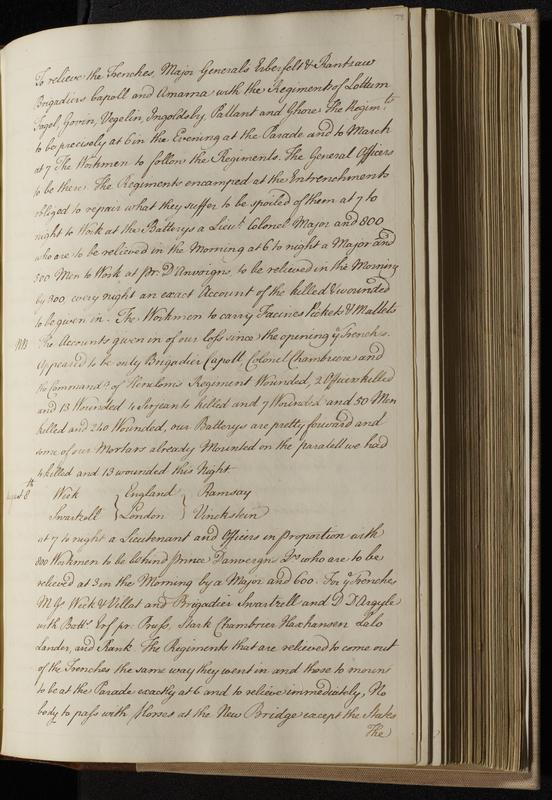 To relieve the Trenches, Major Generals Erberfelt & Rantzaw
Brigadiers Capoll and Amama with the Regiments of Lottum
Fagel, Govin, Vegelin, Ingoldsby, Pallant and Ghore. The Regim.ts
to be precisely at 6 in the Evening at the Parade and to March
at 7 The Workmen to follow the Regiments. The General Officers
to be there. The Regiments encamped at the Entrenchments
obliged to repair what they suffer to be spoiled of them at 7 to
night to Work at the Batterys a Lieut. Colonel Major and 800
who are to be relieved in the Morning at 6 to night a Major and
500 Men to Work at Pr. D'Anvirgns, to be relieved in the Morning
by 300, every night an exact Account of the killed & wounded
to be given in. The Workmen to carry Facines Pickets & Mallets
NB The Accounts given in of our loss since the opening ye Trenches.
Appeared to be only Brigadier Capoll Colonel Chambriere and
the Command.r of Heucloms Regiment Wounded, 2 Officers killed
and 13 Wounded 4 Serjeants killed and 7 Wounded and 50 Men
killed and 240 Wounded, our Batterys are pretty forward and
some of our Mortars already Mounted on the paralell we had
4 killed and 13 wounded this Night
August 8th Week } England } Ramsay
Swartzell } London } Vinckstein
at 7 to night a Lieutenant and Officers in proportion with
800 Workmen to be behind Prince Danvergns Qrs who are to be
relieved at 3 in the Morning by a Major and 600. For ye Trenches
M.Gs Week & Villat and Brigadier Swartzell and D D'Argyle
with Batts. Pr. Pruss, Stark Chambrier Haxhansen Lalo
Lander, and Rank. The Regiments that are relieved to come out
of the Trenches the same way they went in and those to mount
to be at the Parade exactly at 6 and to relieve immediately, No
body to pass with Horses at the New Bridge except the States
The